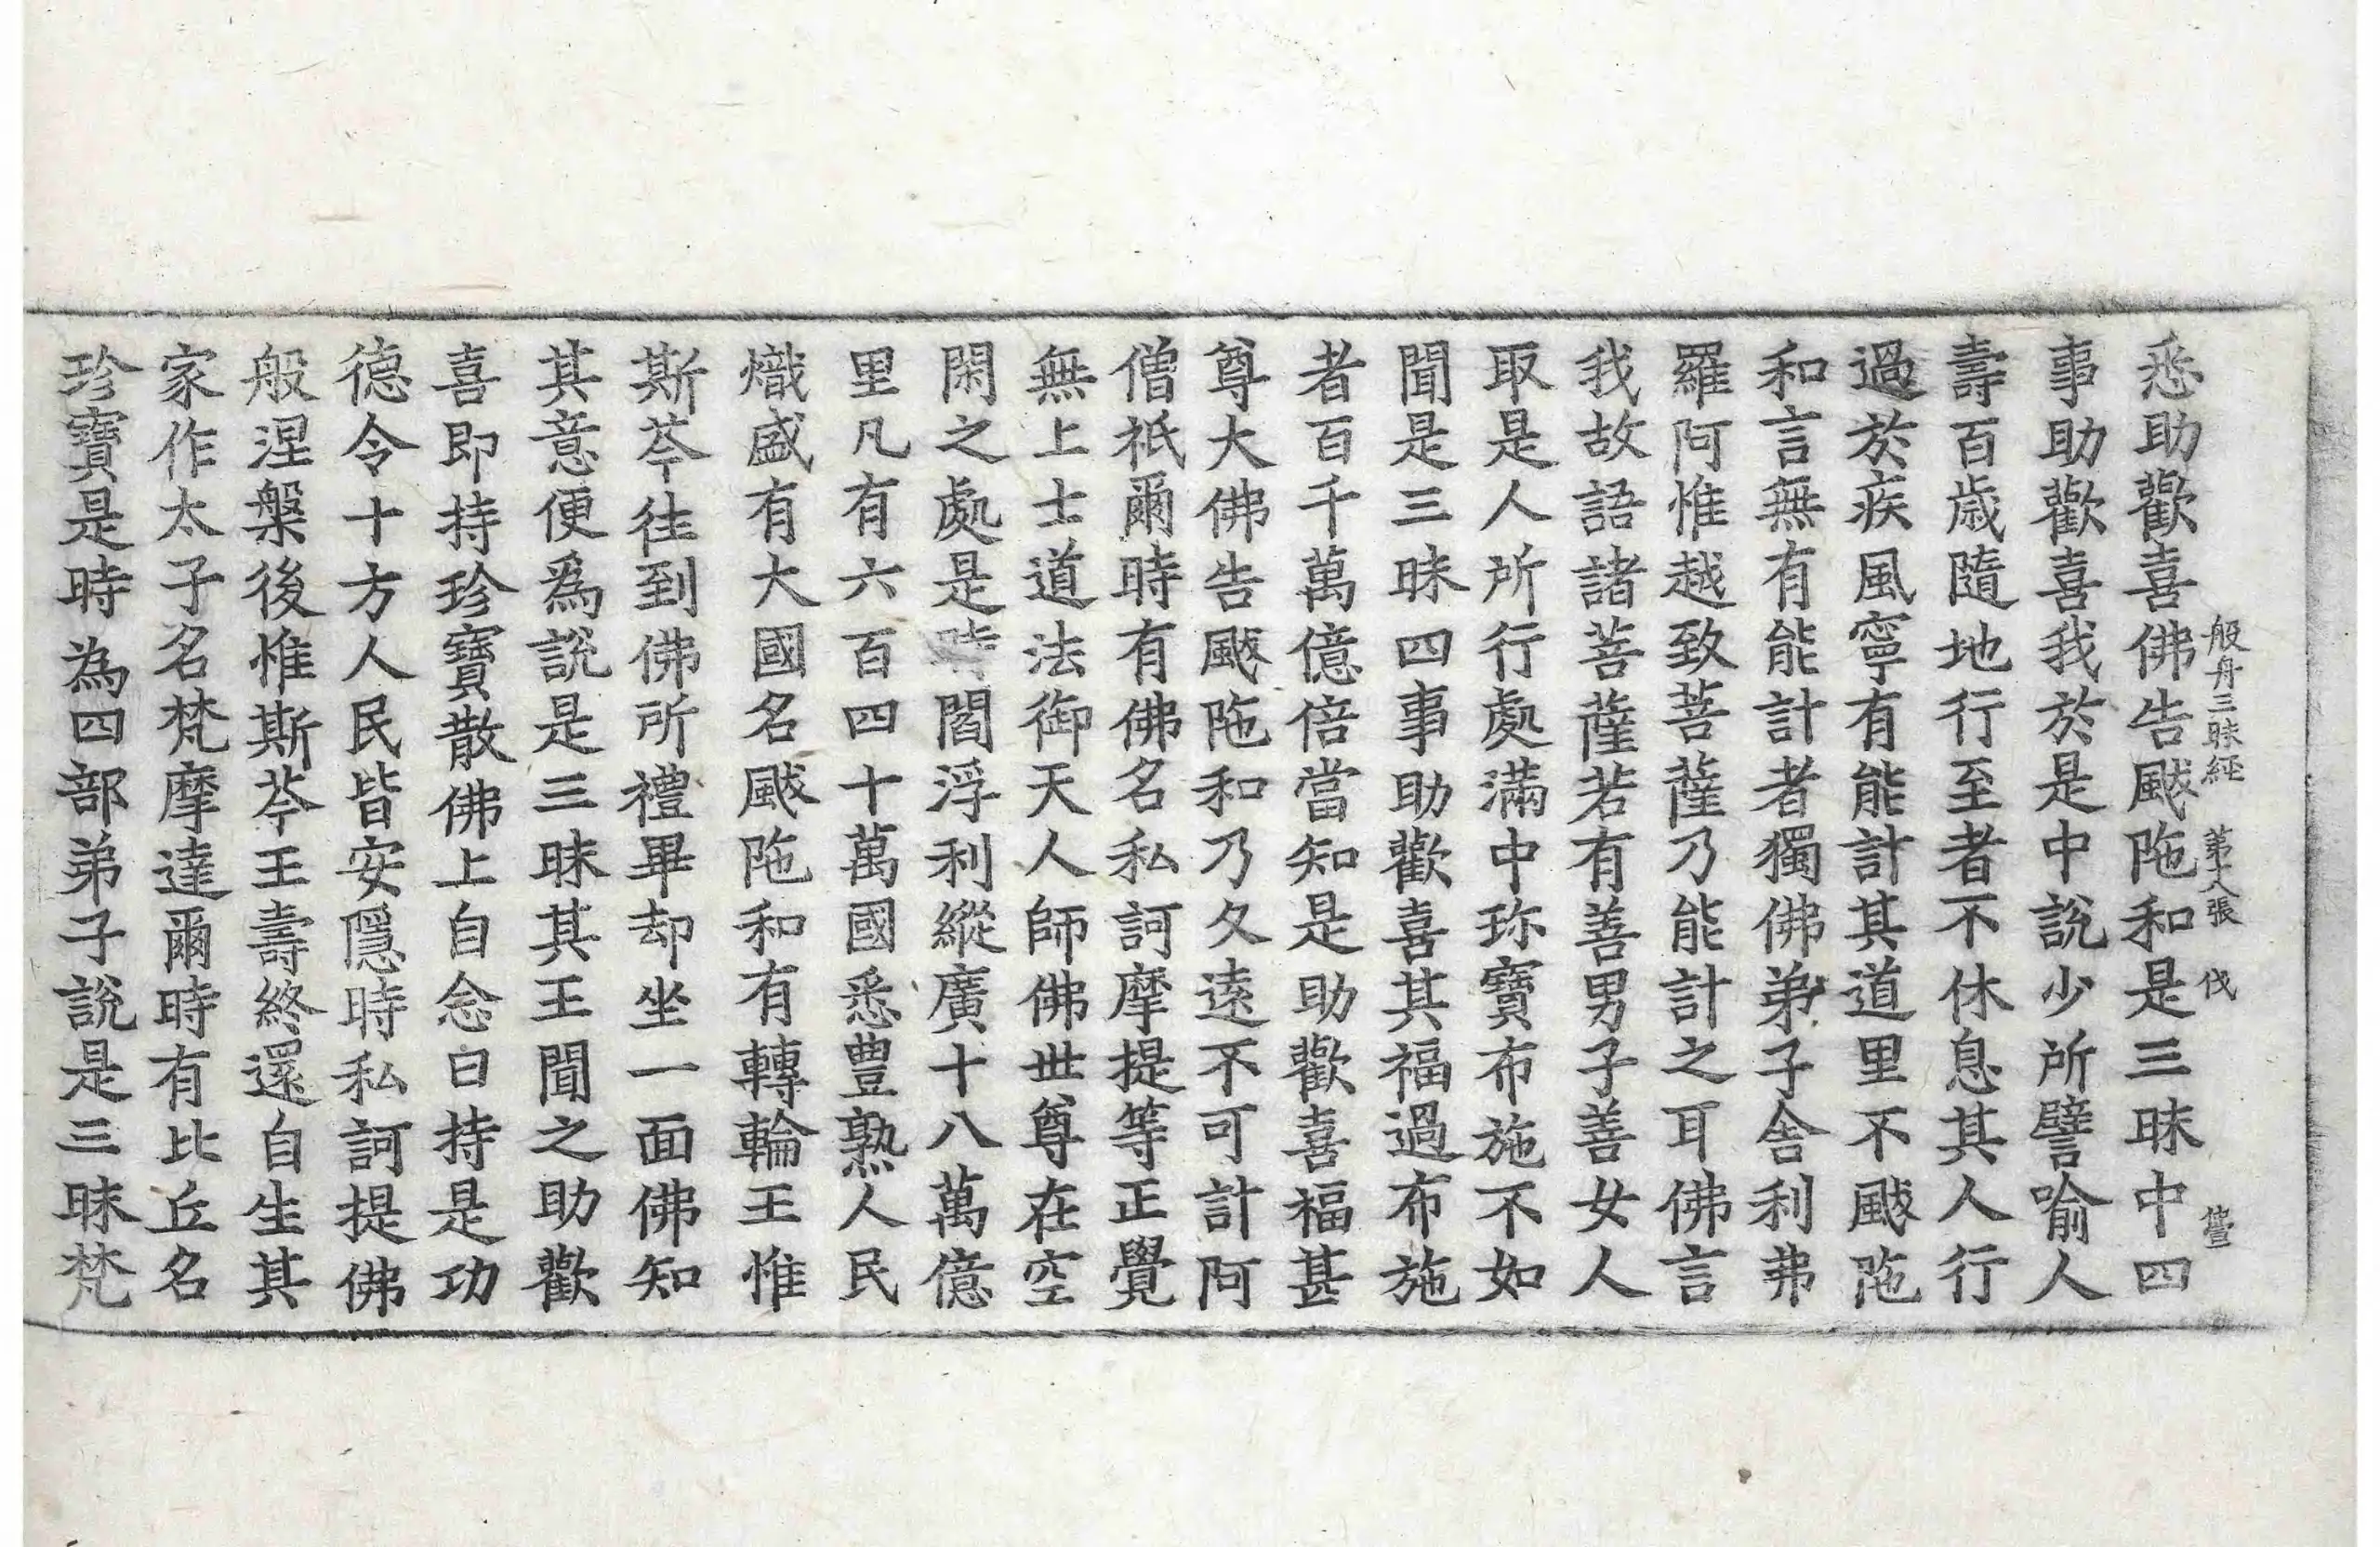 般舟三昧経 第六張 伐
悉助歡喜佛告颰陁和是三昧中四
事助歡喜我於是中說少所譬喻人
壽百歲隨地行至者不休息其人行
過於疾風寧有能計其道里不颰陁
和言無有能計者獨佛弟子舍利弗
羅阿惟越致菩薩乃能計之耳佛言
我故語諸菩薩若有善男子善女人
取是人所行處滿中珎寶布施不如
聞是三昧四事助歡喜其福過布施
者百千萬億倍當知是助歡喜福甚
尊大佛告颰陁和乃久遠不可計阿
僧祇爾時有佛名私訶摩提等正覺
無上士道法御天人師佛世尊在空
閑之處是時閻浮利縱廣十八萬億
里凡有六百四十萬國悉豊熟人民
熾盛有大國名颰陁和有轉輪王惟
斯芩往到佛所禮畢却坐一面佛知
其意便爲說是三昧其王聞之助歡
喜即持珍寶散佛上自念曰持是功
德令十方人民皆安隱時私訶提佛
般涅槃後惟斯芩王壽終還自生其
家作太子名梵摩達爾時有比丘名
珍寶是時為四部弟子說是三昧梵